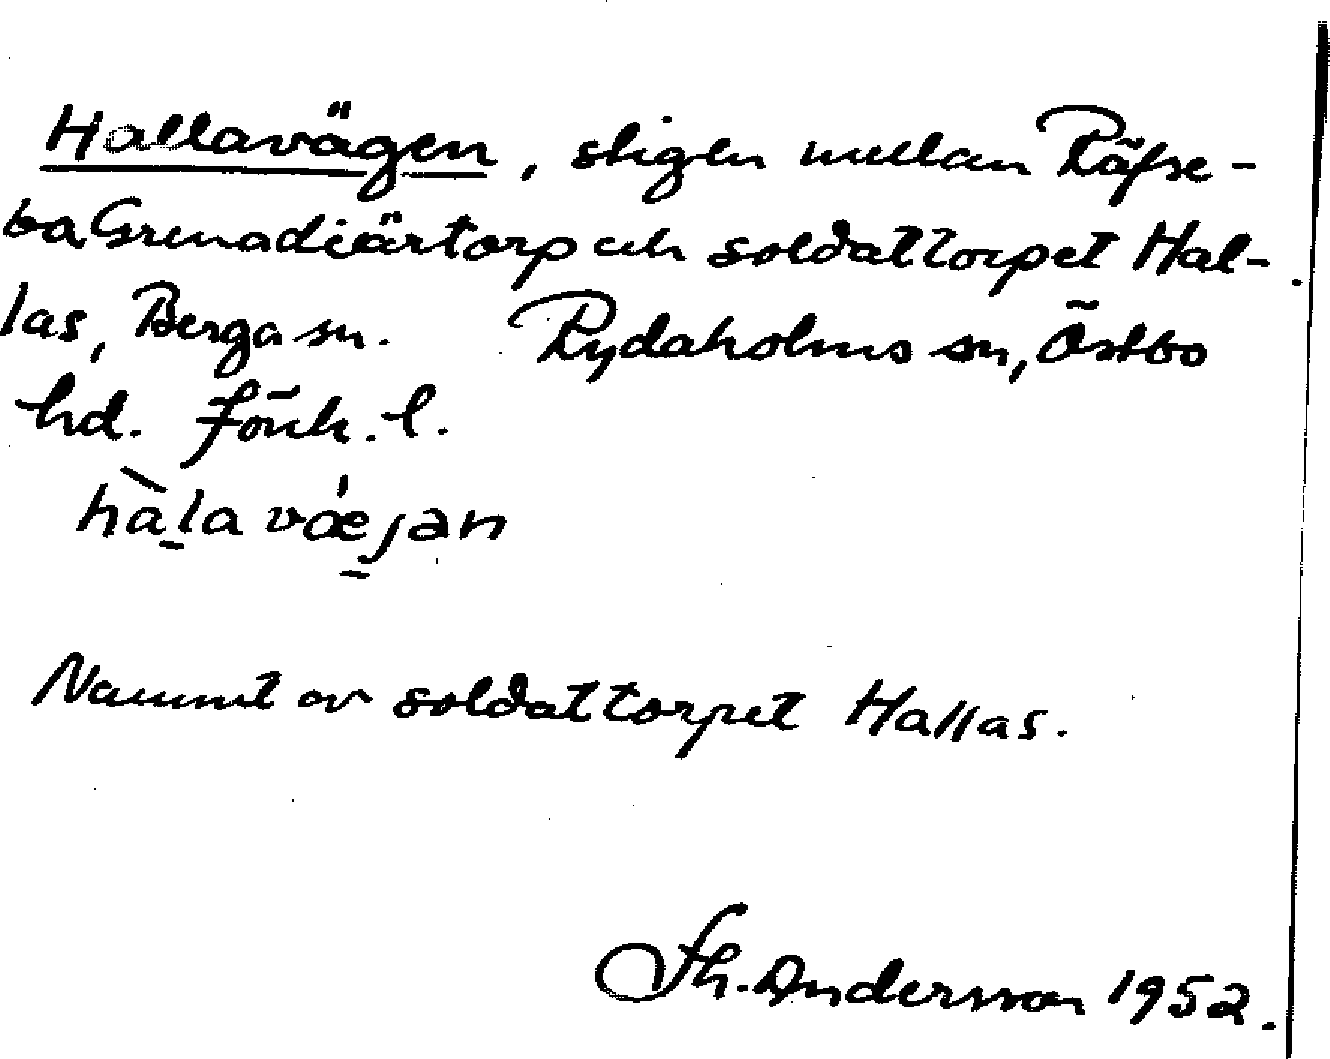 Hallavägen, stigen mellan Räfse-
bo Grenadiärtorp och soldattorpet Hal-
las, Berga sn. Rydaholms sn, Östbo
hd. Jönk. l.
hàla váejan
Namnet av soldattorpet Hallas.
Th. Andersson 1952.